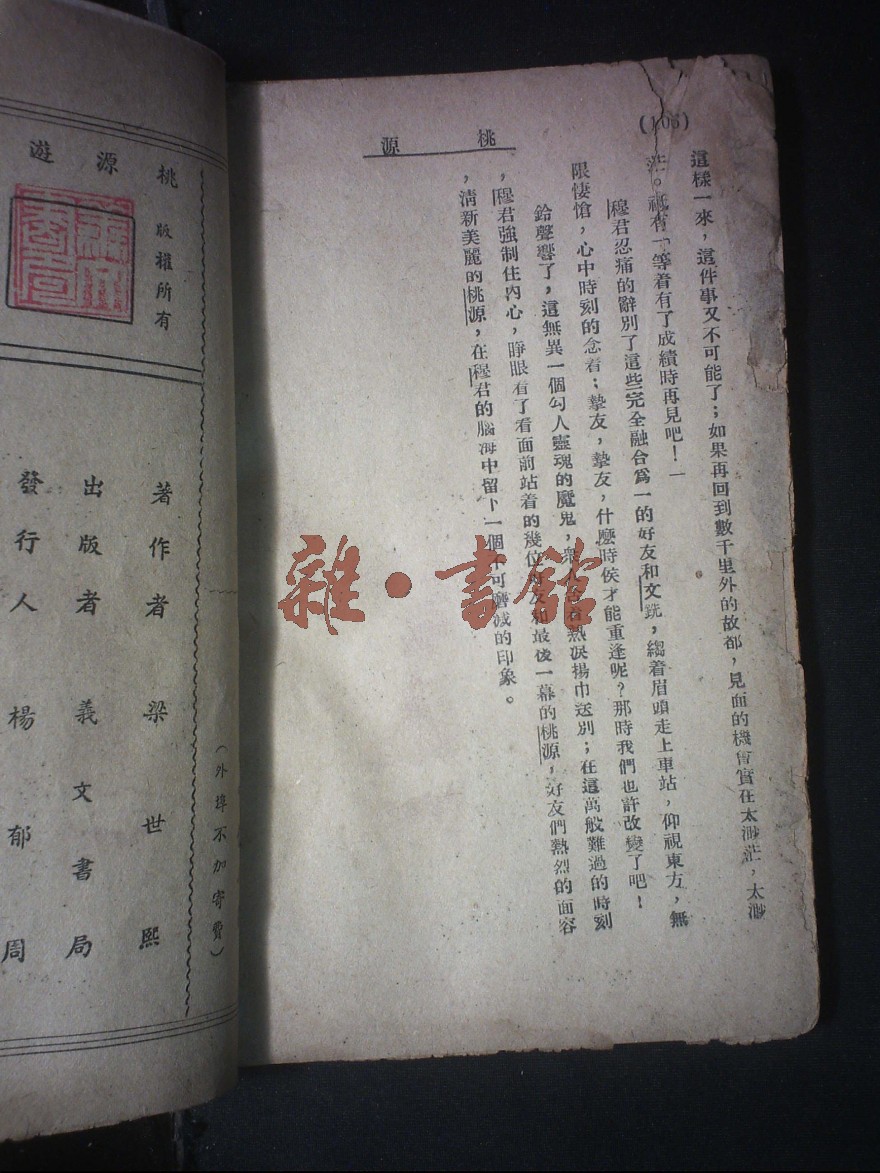 (106)
桃源
這樣一來，這件事又不可能了；如果再回到數千里外的故都，見面的機會實在太渺茫，太渺
茫。祗有「等着有了成績時再見吧！」
穆君忍痛的辭別了這些完全融合爲一的好友和文銑，縐着眉頭走上車站，仰視東方，無
限悽愴，心中時刻的念着；摯友，摯友，什麼時候才能重逢呢？那時我們也許改變了吧！
鈴聲響了，這無異一個勾人靈魂的魔鬼，衆熱淚揚巾送別；在這萬般難過的時刻
，穆君強制住內心，睜眼看了看面前站着的幾位好友和最後一幕的桃源，好友們熱烈的面容
，清新美麗的桃源，在穆君的腦海中留下一個不可磨滅的印象。
雜·書館
桃源遊
版權所有
（外埠不加寄費）
著作者 梁世熙
出版者 義文書局
發行人 楊郁周